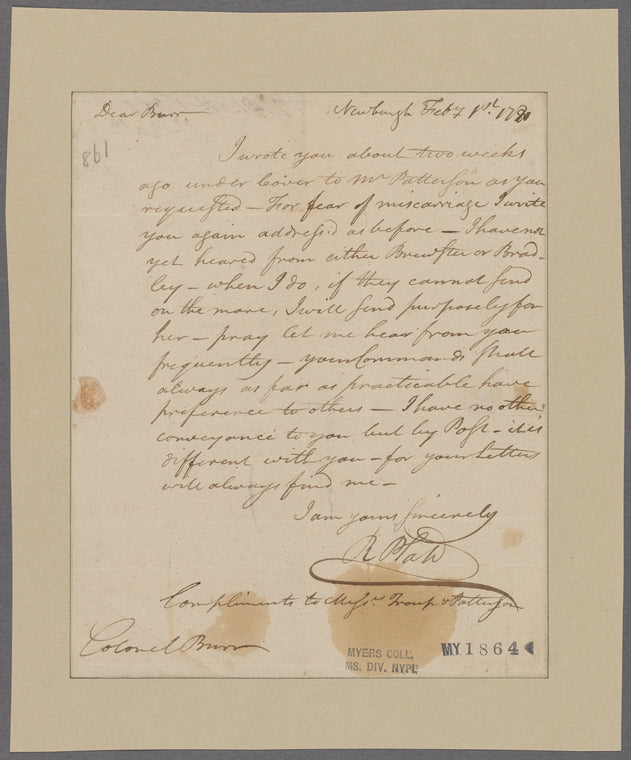 Dear Burr
Newburgh Feby 1st. 1781
198
I wrote you about two weeks
ago under Cover to Mr Patterson as you
requested — For fear of miscarriage I write
you again address'd as before — I have not
yet heared from either Brewster or Brad-
ley — when I do, if they cannot send
on the mare, I will send purposely for
her — pray let me hear from you
frequently — your Commands shall
always as far as practicable have
preference to others — I have no other
conveyance to you but by Post — it is
different with you — for your Letters
will always find me —
I am yours sincerely
R Platt
Compliments to Messrs Troup & Patterson
Colonel Burr
MYERS COLL,
MS. DIV. NYPL
MY 1864